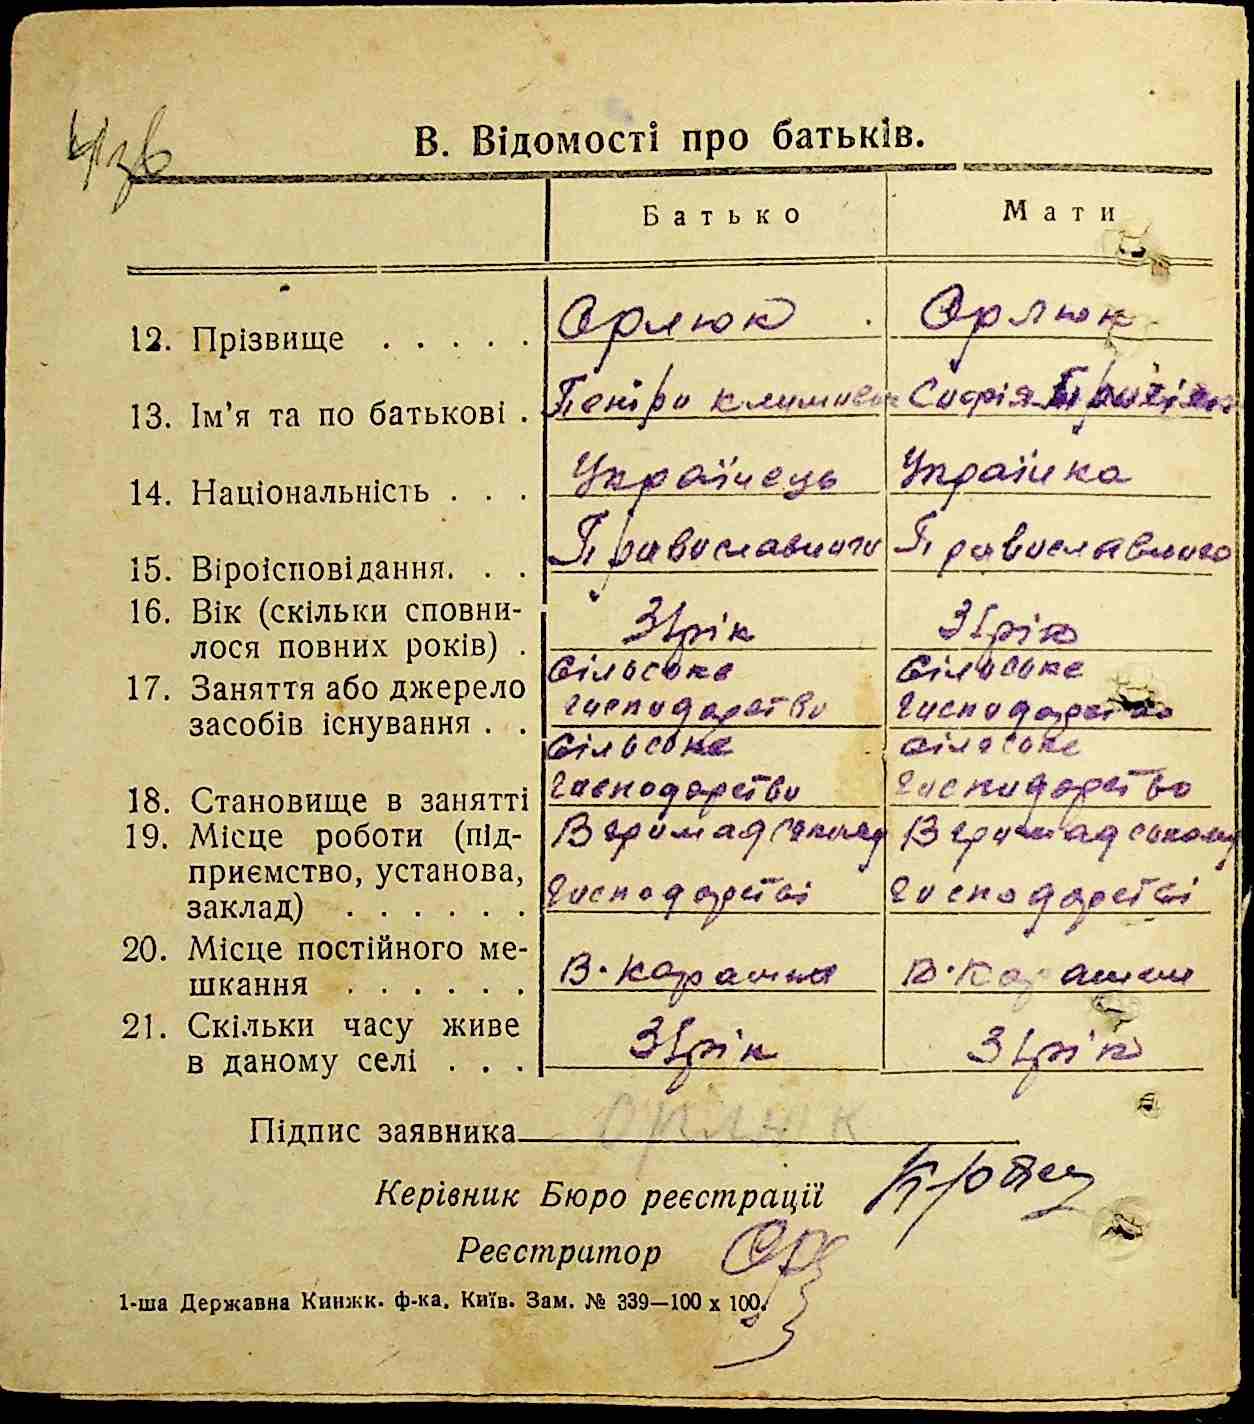 В. Відомості про батьків.
Батько Мати
12. Прізвище . . . . . Орлюк Орлюк
13. Ім'я та по батькові . Софія
14. Національність . . . Українець Українка
15. Віроісповідання. . . Православного Православного
16. Вік (скільки сповни- 31рік 31рік
лося повних років) .
17. Заняття або джерело Сільське Сільське
засобів існування . . господарство господарство
сільське сільське
18. Становище в занятті господарство господарство
19. Місце роботи (під- В громадському В громадському
приємство, установа,
заклад) . . . . . . господарстві господарстві
20. Місце постійного ме-
шкання . . . . . . В. Карашин В. Карашин
21. Скільки часу живе 31рік 31рік
в даному селі . . .
Підпис заявника орлюк
Керівник Бюро реєстрації
Реєстратор
1-ша Державна Кинжк. ф-ка. Київ. Зам. № 339—100 х 100.